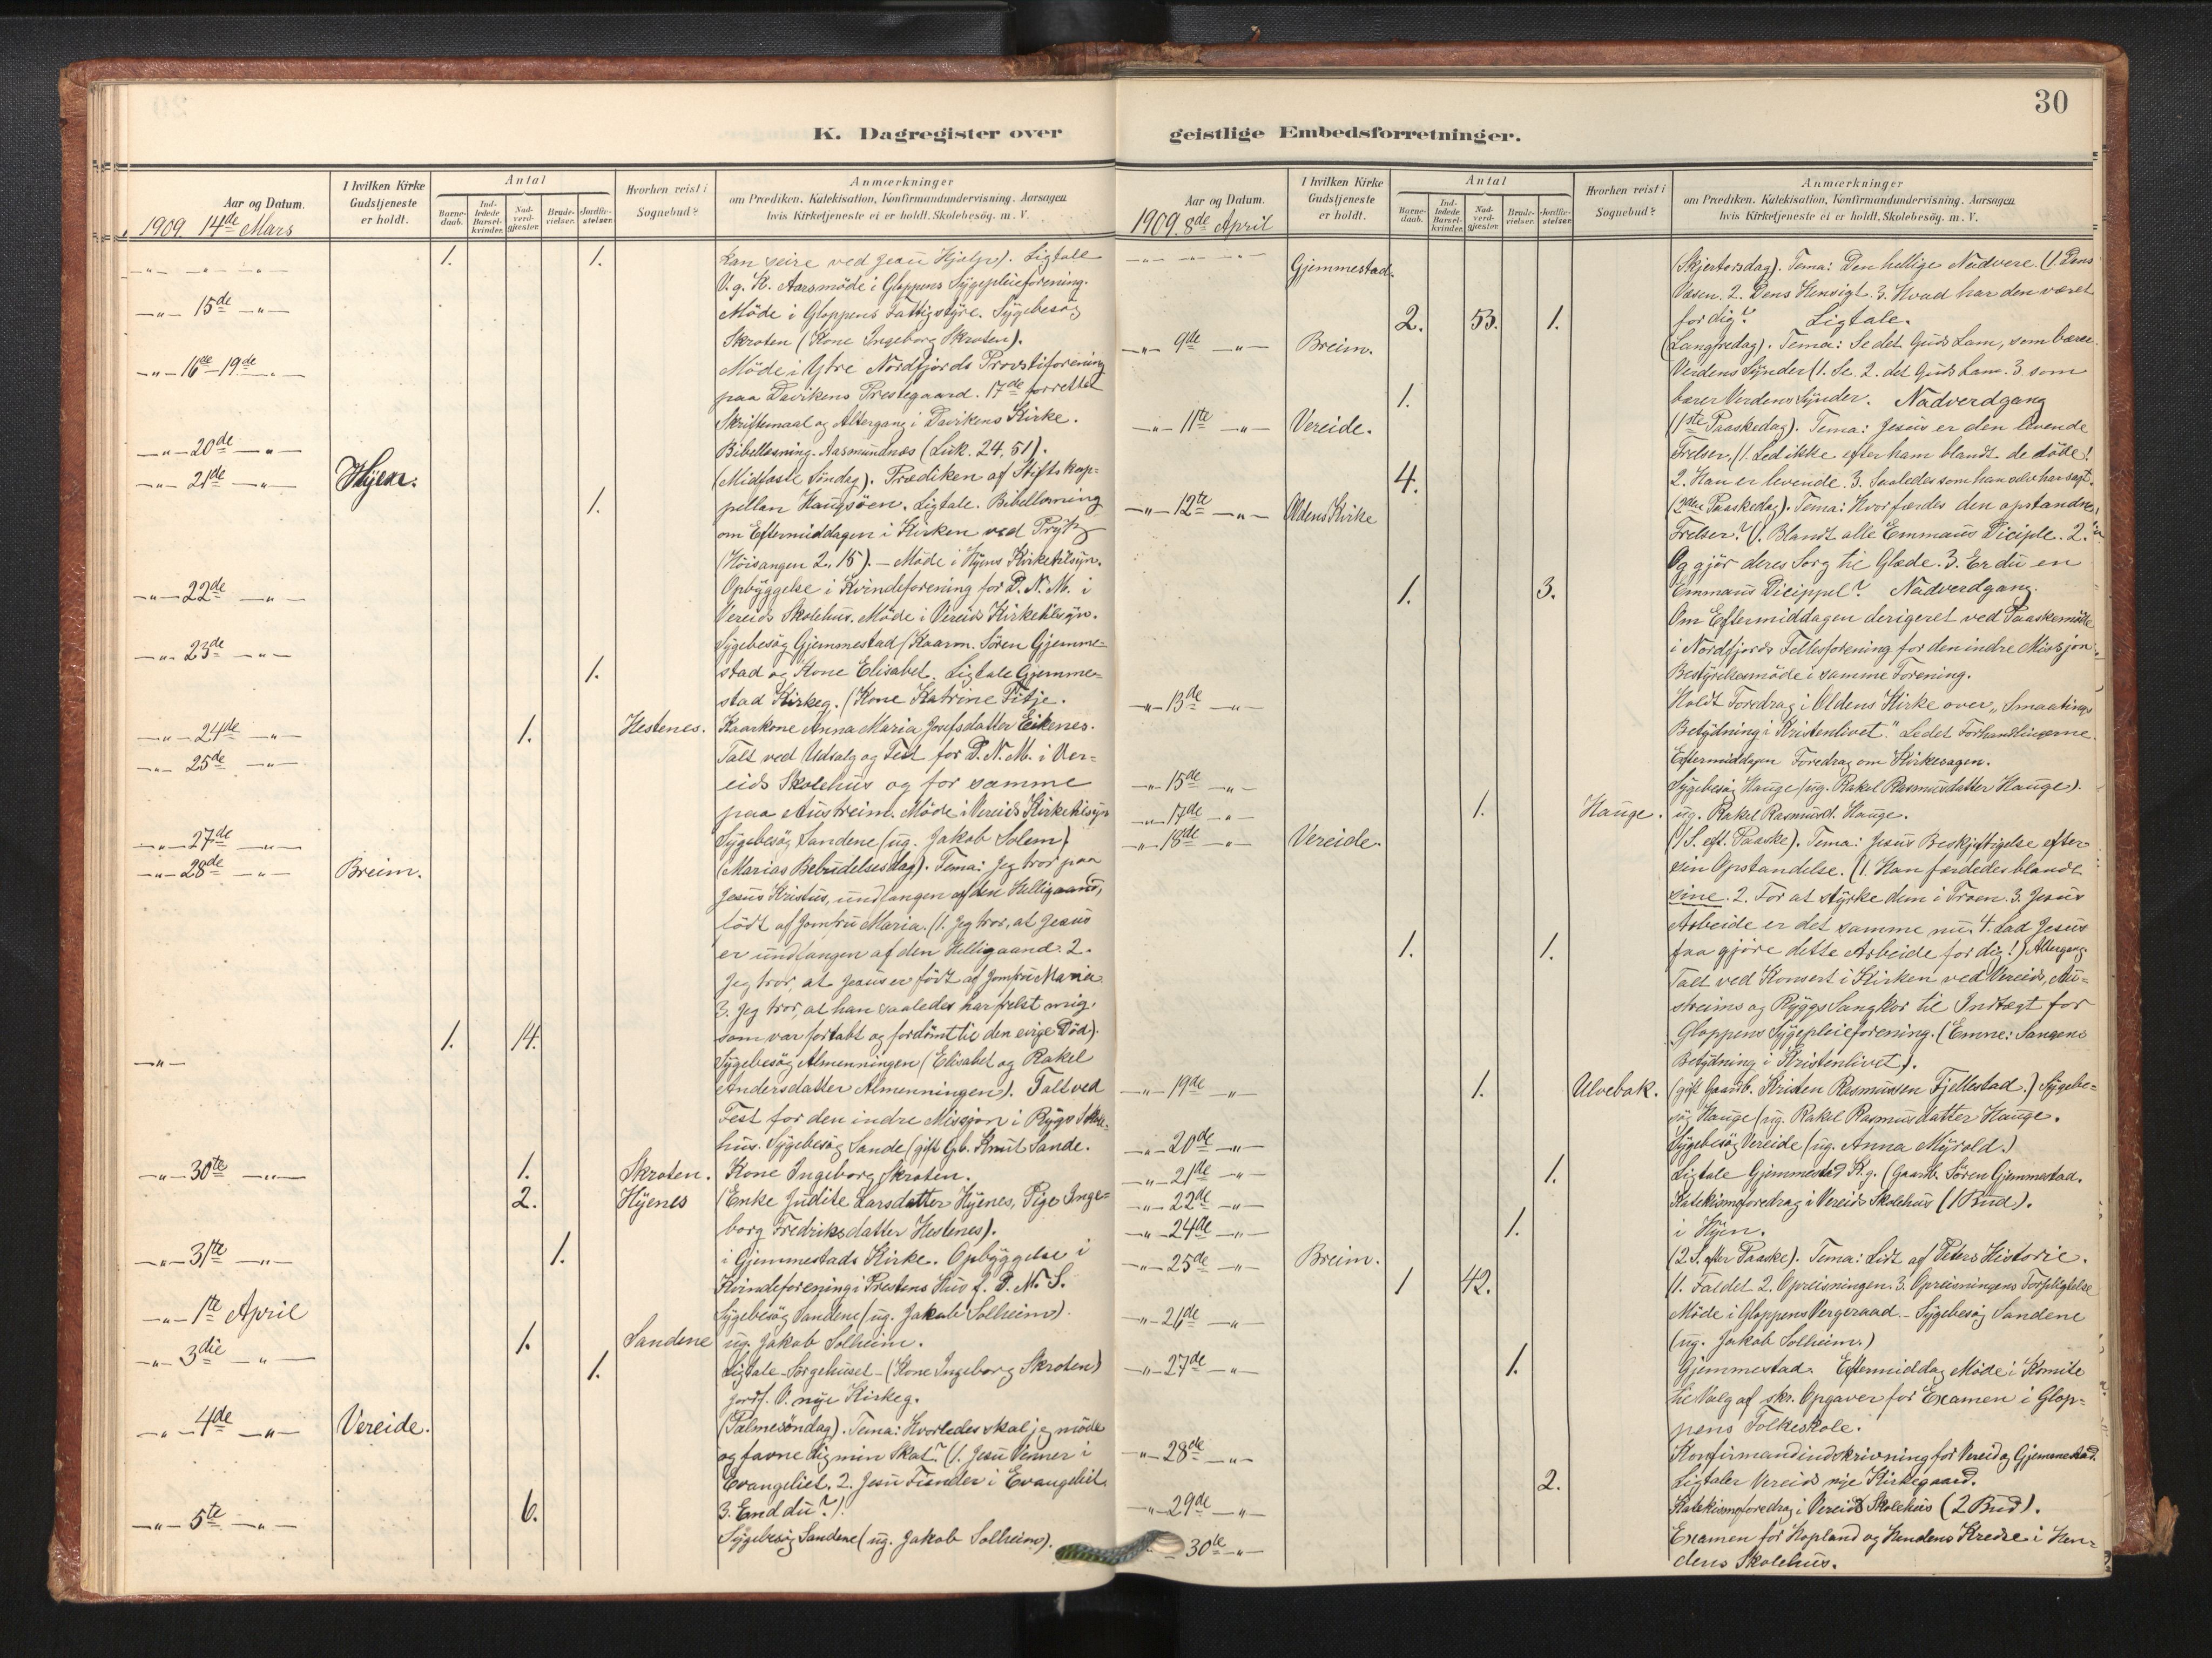 30
K. Dagregister over
geistlige Embedsforretninger.
Aar og Datum.
1909. 14de Mars
I hvilken Kirke Gudstjeneste er holdt.
Antal
Barnedaab.
Indledede Barselkvinder.
Nadverdgjæster.
Brudevielser.
Jordfæstelser.
Hvorhen reist i Sognebud?
Anmærkninger
om Prædiken. Katekisation, Konfirmandundervisning. Aarsagen
hvis Kirketjeneste ei er holdt. Skolebesøg. m. V.
1. 1. kan seire ved Jesu Hjælp). Ligtale
V. g. K. Aarsmöde i Gloppens Sygepleieforening.
15de Möde i Gloppens Fattigstyre. Sygebesög
Skroten (Kone Ingeborg Skroten).
16de-19de Möde i Ytre Nordfjords Provstiforening
paa Davikens Prestegaard. 17de forrettet
Skriftemaal og Altergang i Davikens Kirke.
20de Bibellesning Aasmundnæs (Luk. 24, 51).
21de Hyen. (Midfaste Söndag). Prædiken af Stiftskap-
1. pellan Haugsöen. Ligtale. Bibellesning
om Eftermiddagen i Kirken ved Prytz
(Höisangen 2, 15). - Möde i Hyens Kirketilsyn.
22de Opbyggelse i Kvindeforening for D. N. M. i
Vereids Skolehus. Möde i Vereids Kirketilsyn.
23de Sygebesög Gjemmestad (Kaarm. Sören Gjemme-
1. stad og Kone Elisabet. Ligtale Gjemme-
stad Kirkeg. (Kone Katrine Fitje.
24de 1. Hestenes. Kaarkone Anna Maria Josefsdatter Eikenes.
25de Talt ved Udsalg og Fest for D. N. M. i Ver-
eids Skolehus og for samme
paa Austreim. Möde i Vereids Kirketilsyn
27de Sygebesög Sandene (ug. Jakob Solem)
28de Breim. (Marias Bebudelsesdag). Tema: Jeg tror paa
Jesus Kristus, undfangen af den Helligaand,
född af Jomfru Maria. (1. Jeg tror, at Jesus
er undfangen af den Helligaand. 2.
Jeg tror, at Jesus er född af Jomfru Maria
3. Jeg tror, at han saaledes har frelst mig,
1. 14. som var fortabt og fordömt til den evige Död).
Sygebesög Almenningen (Elisabet og Rakel
Andersdatter Almenningen). Talt ved
Fest for den indre Missjon i Rygs Skole-
hus. Sygebesög Sande (gift Gb. Knut Sande.
30te 1. Skroten. Kone Ingeborg Skroten.
2. Hyenes (Enke Judite Larsdatter Hyenes, Pige Inge-
borg Fredriksdatter Hestenes).
31te 1. i Gjemmestads Kirke. Opbyggelse i
Kvindeforening i Prestens Hus f. D. N. S.
1te April Sygebesög Sandene (ug. Jakob Solheim).
3die 1. Sandene ug. Jakob Solheim.
1. Ligtale Sörgehuset - (Kone Ingeborg Skroten)
Jordf. V. nye Kirkeg.
4de Vereide. (Palmesöndag). Tema: Hvorledes skal jeg möde
og favne dig min Skat? (1. Jesu Venner i
Evangeliet. 2. Jesu Fiender i Evangeliet
6. 3. End du?).
5te Sygebesög Sandene (ug. Jakob Solheim).
Aar og Datum.
1909. 8de April
I hvilken Kirke Gudstjeneste er holdt.
Antal
Barnedaab.
Indledede Barselkvinder.
Nadverdgjæster.
Brudevielser.
Jordfæstelser.
Hvorhen reist i Sognebud?
Anmærkninger
om Prædiken. Katekisation, Konfirmandundervisning. Aarsagen
hvis Kirketjeneste ei er holdt. Skolebesøg. m. V.
Gjemmestad. (Skjertorsdag). Tema: Den hellige Nadvere. (1. Dens
Væsen. 2. Dens Hensigt. 3. Hvad har den været
2. 53. 1. for dig? Ligtale.
9de Breim. (Langfredag). Tema: Se det Guds Lam, som bærer
Verdens Synder (1. Se. 2. det Guds Lam. 3. som
1. bærer Verdens Synder. Nadverdgang
11te Vereide. (1ste Paaskedag). Tema: Jesus er den levende
Frelser. (1. Led ikke efter ham blandt de döde!
4. 2. Han er levende. 3. Saaledes som han selv har sagt.
12te Oldens Kirke (2den Paaskedag). Tema: Hvor færdes den opstandne
Frelser? (1. Blandt alle Emmaus Diciple. 2.
Og gjör deres Sorg til Glæde. 3. Er du en
1. 3. Emmaus Dicippel? Nadverdgang.
Om Eftermiddagen derigeret ved Paaskemöde
i Nordfjords Fellesforening for den indre Missjon.
Bestyrelsesmöde i samme Forening.
13de Holdt Foredrag i Oldens Kirke over „Smaatings
Betydning i Kristenlivet." Ledet Forhandlingerne.
Eftermiddagen Foredrag om Kirkesagen.
15de Sygebesög Hauge (ug. Rakel Rasmusdatter Hauge).
17de 1. Hauge. ug. Rakel Rasmusd. Hauge.
18de Vereide. (1 S. eft. Paaske). Tema: Jesus Beskjæftigelse efter
sin Opstandelse. (1. Han færdedes blandt
sine. 2. For at styrke dem i Troen. 3. Jesus
Arbeide er det samme nu. 4. Lad Jesus
1. 1. faa gjöre dette Arbeide for dig!) Altergang.
Talt ved Konsert i Kirken ved Vereids, Au-
streims og Ryggs Sangkor til Indtægt for
Gloppens Sygepleieforening. (Emne: Sangens
Betydning i Kristenlivet).
19de 1. Ulvebak. (gift Gaardb. Kristen Rasmussen Fjellestad.) Sygebe-
sög Hauge (ug. Rakel Rasmusdatter Hauge.
20de Sygebesög Vereide (ug. Anna Myrold.)
21de 1. Ligtale Gjemmestad K.g. (Gaardb. Sören Gjemmestad.
22de Katekismeforedrag i Vereids Skolehus (1 Bud).
24de 1. i Hyen.
25de Breim. (2 S. efter Paaske). Tema: Lidt af Peters Historie.
1 42. (1. Faldet 2. Opreisningen. 3. Opreisningens Forpligtelse
26de Möde i Gloppens Vergeraad - Sygebesög Sandene
(ug. Jakob Solheim.)
27de 1. Gjemmestad. Eftermiddag Möde i Komite
til Valg af skr. Opgaver for Examen i Glop-
pens Folkeskole.
28de Konfirmandindskrivning for Vereid og Gjemmestad.
2. Ligtaler Vereids nye Kirkegaard.
29de Katekismeforedrag i Vereids Skolehus (2 Bud).
30te Examen for Hopland og Hendens Kredse i Hen-
dens Skolehus.